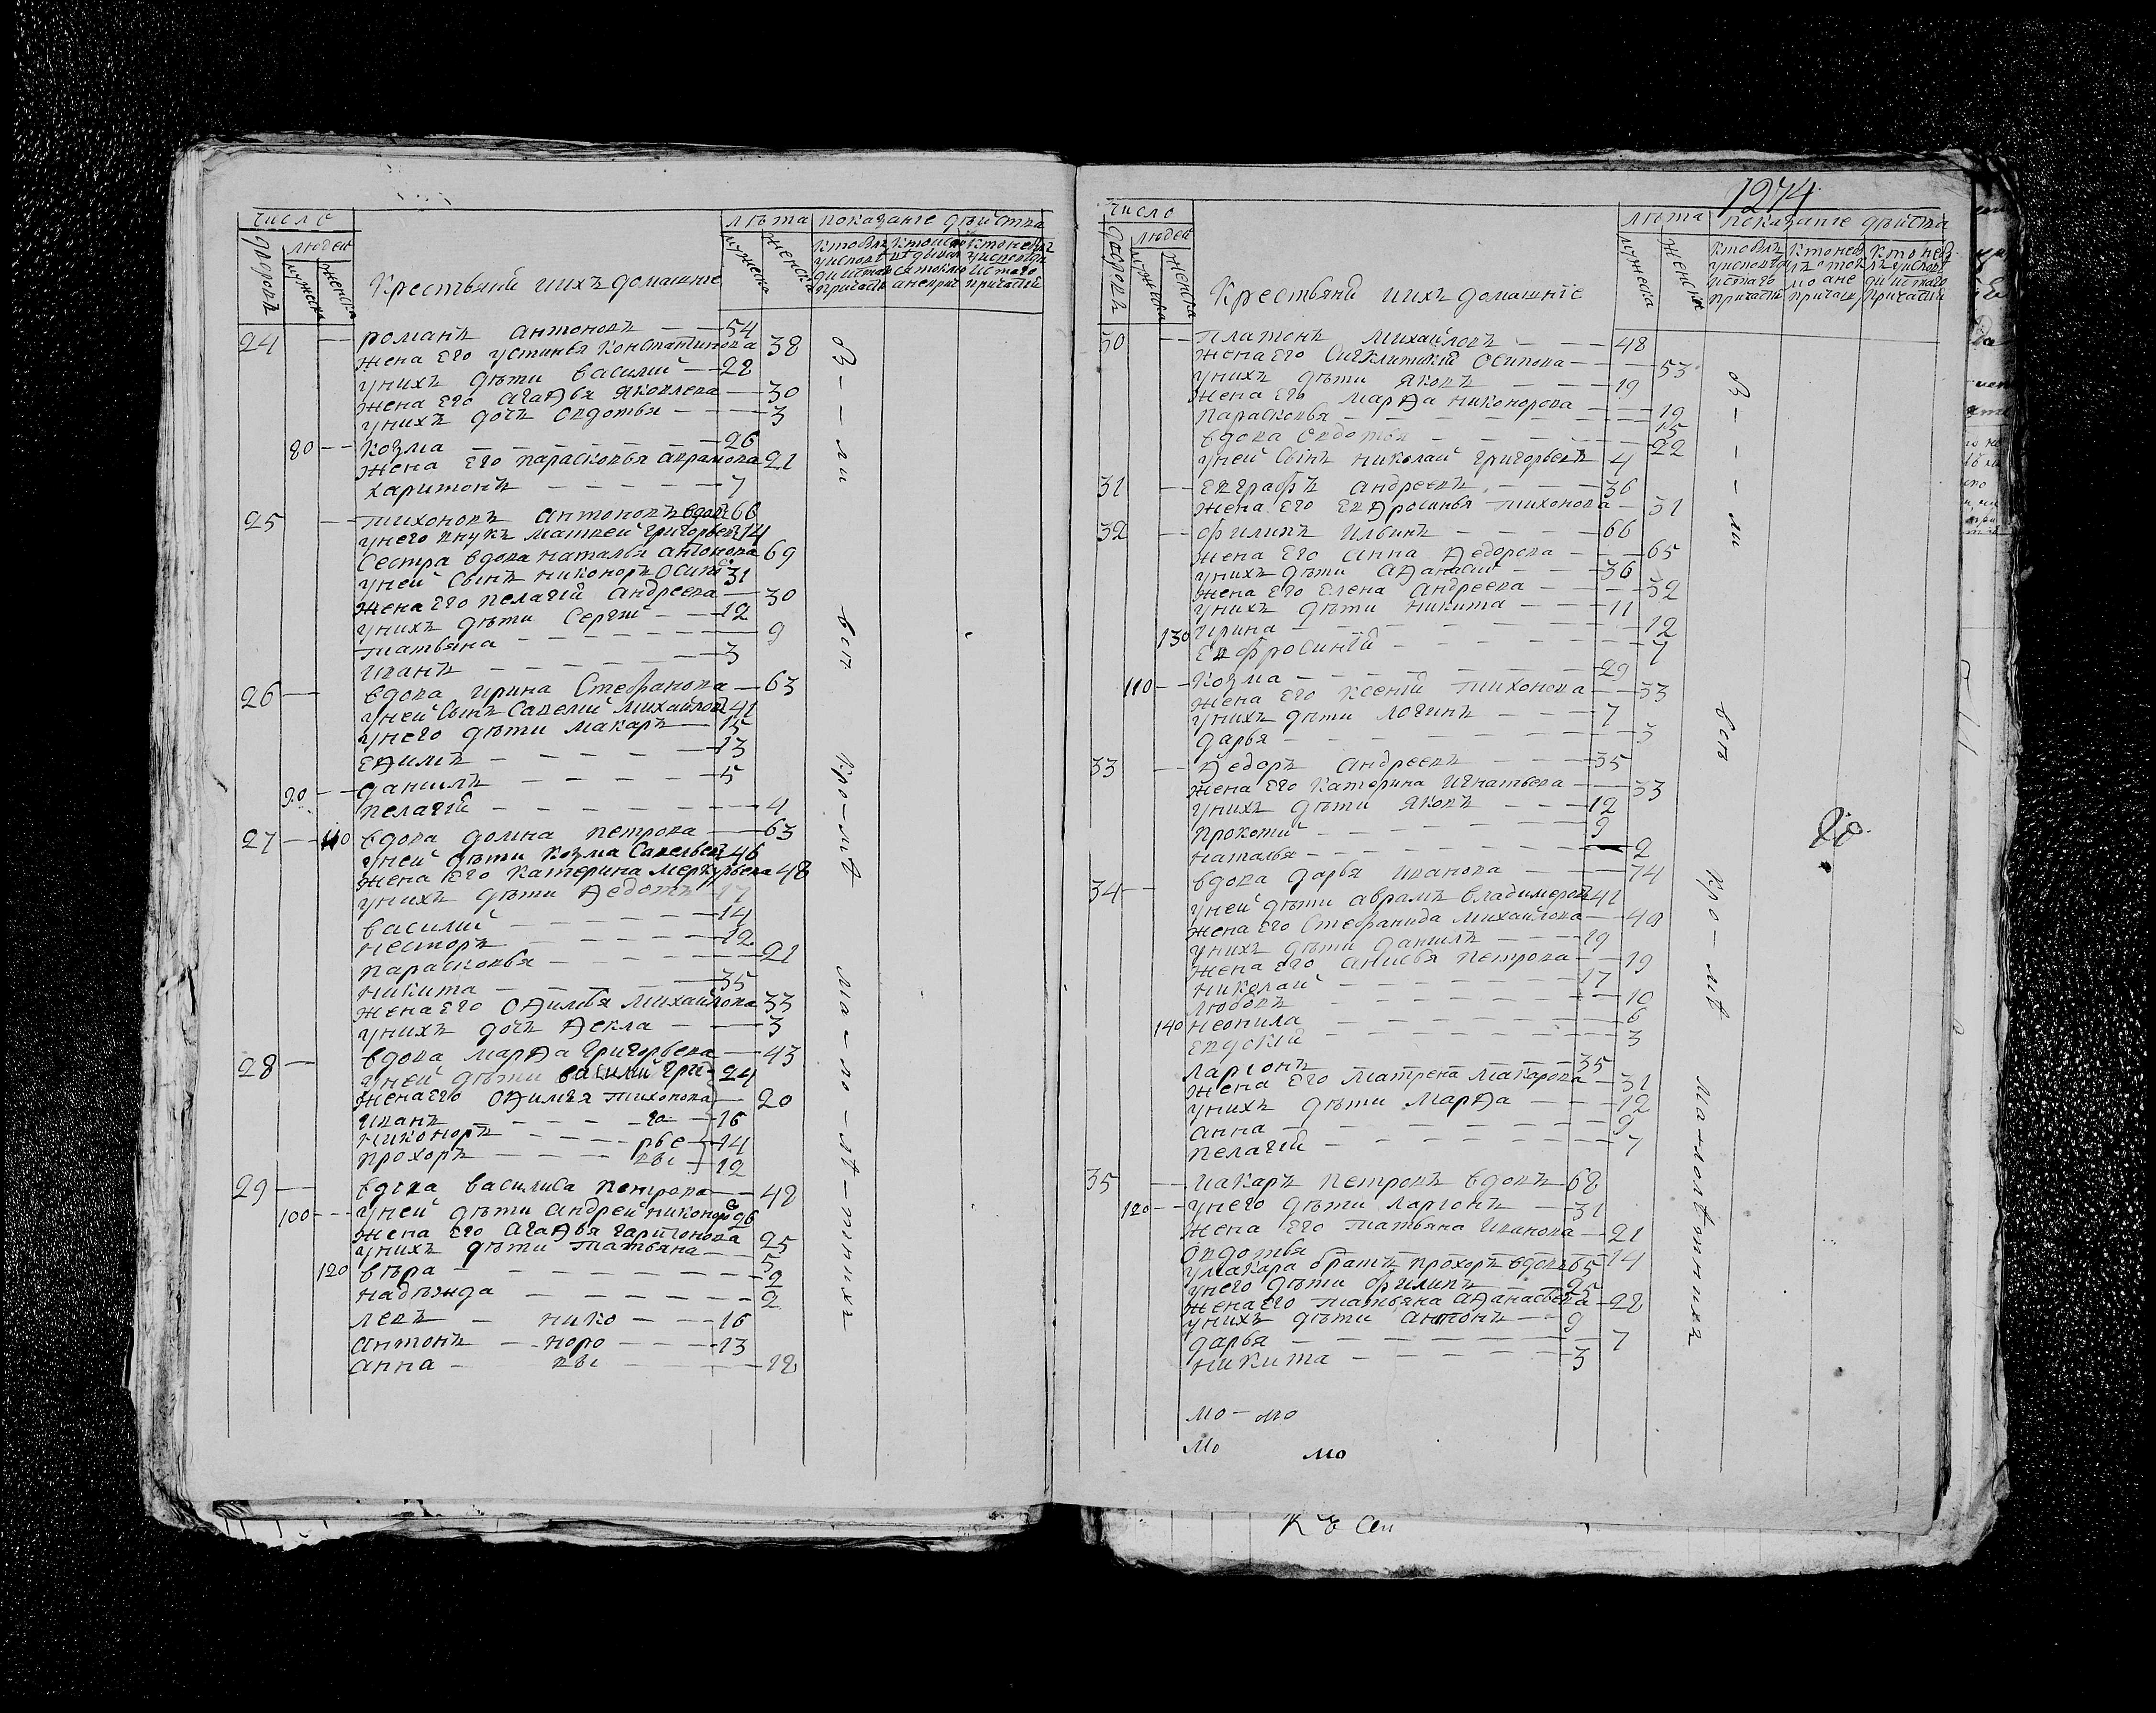 число
лѣта показание дѣйства
дворовъ
людей
мужеска
женска
Крестьяни иихъ домашние
мужеска
женска
24 романъ антоновъ 54
жена его устинья константинова 38
унихъ дѣти василий 28
жена его агаѳья яковлева 30
унихъ дочь овдотья 3
80 козма 26
жена его парасковья аврамова 21
харитонъ 7
25 тихоновъ антоновъ вдовъ 66
унего внукъ матвей григорьевъ 14
сестра вдова наталья антонова 69
уней сынъ никоноръ осипо 31
жена его пелагия андреева 30
унихъ дѣти сергий 12
татьяна 9
иванъ 3
26 вдова ирина стефанова 63
уней сынъ савелий михайловъ 41
унего дѣти макаръ 15
еѳимъ 13
90 данилъ 5
пелагия 4
27 110 вдова домна петрова 63
уней дѣти козма савельевъ 46
жена его катерина меркурьева 48
унихъ дѣти ѳедотъ 17
василий 14
несторъ 12
парасковья 21
никита 35
жена его оѳимья михайлова 33
унихъ дочь ѳекла 3
28 вдова марѳа григорьева 43
уней дѣти василий гри 24
жена его оѳимья тихонова 20
иванъ го 16
никоноръ рье 14
прохоръ вы 12
29 вдова василиса петрова 48
100 уней дѣти андрей никоноро 26
жена его агаѳья харитонова 25
унихъ дѣти татьяна 5
120 вѣра 2
надѣжда 2
левъ нико 16
антонъ норо 13
анна вы 18
в ли
всп
кро мѣ
ма ло лѣ тнихъ
1274
число
лѣта показание дѣйства
дворовъ
людей
мужеска
женска
Крестьяни иихъ домашние
мужеска
женска
30 платонъ михайловъ 48
жена его сигклитикия осипова 53
унихъ дѣти яковъ 19
жена его марѳа никонорова 19
парасковья 15
вдова овдотья 22
уней сынъ николай григорьевъ 4
31 евграфъ андреевъ 36
жена его евѳросинья тихонова 31
32 филипъ ильинъ 66
жена его анна ѳедорова 65
унихъ дѣти аѳанасий 36
жена его елена андреева 32
унихъ дѣти никита 11
130 ирина 12
евфросиния 7
110 козма 29
жена его ксения тихонова 33
унихъ дѣти логинъ 7
дарья 3
33 ѳедоръ андреевъ 35
жена его катерина игнатьева 33
унихъ дѣти яковъ 12
прокопий 9
наталья 2
34 вдова дарья иванова 74
уней дѣти аврамъ владимеровъ 41
жена его стефанида михайлова 40
унихъ дѣти данилъ 19
жена его анисья петрова 19
николай 17
любовь 10
140 неонила 6
евдокия 3
ларионъ 35
жена его матрена макарова 31
унихъ дѣти марѳа 12
анна 9
пелагия 7
35 макаръ петровъ вдовъ 68
120 унего дѣти ларионъ 31
жена его татьяна иванова 21
овдотья 14
умакара братъ прохоръ вдовъ 65
унего дѣти филипъ 25
жена его татьяна аѳанасьева 28
унихъ дѣти антонъ 9
дарья 7
никита 3
в ли
всп
кро мѣ
малолѣтнихъ
мо мо
мо мо